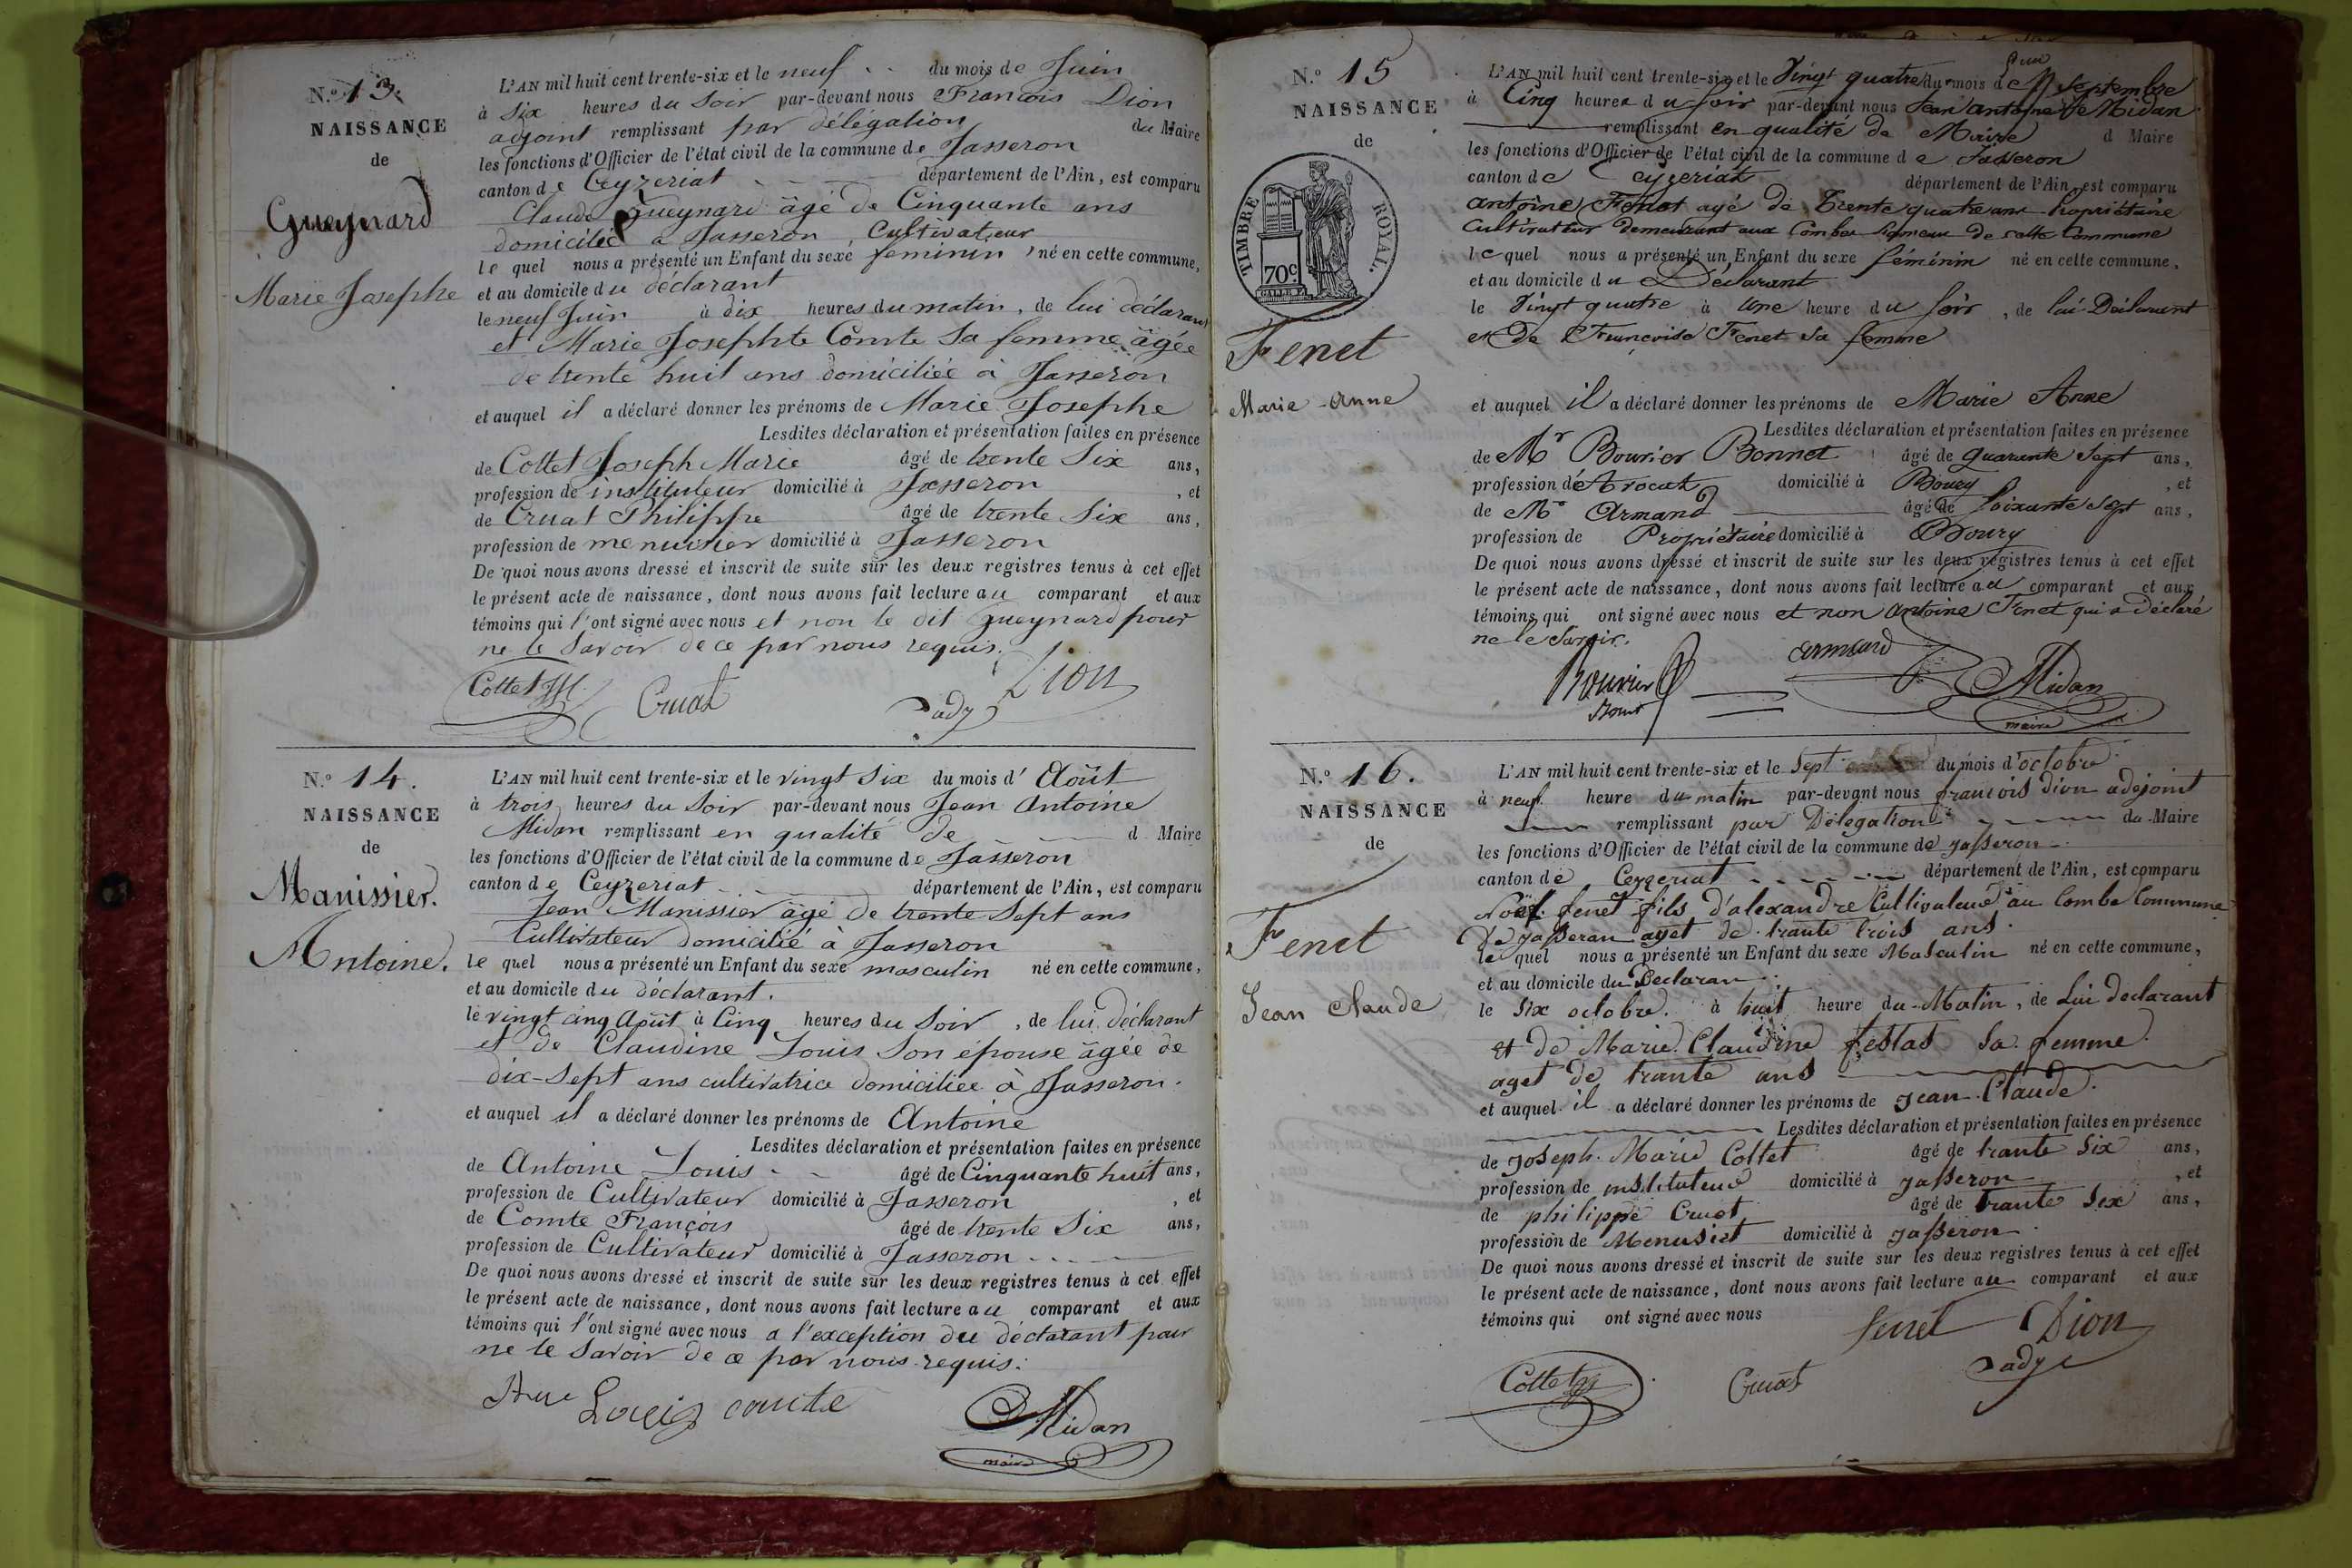 N.º 13.
NAISSANCE
de
Gueynard
Marie Josephe
L'AN mil huit cent trente-six et le neuf du mois de Juin
à six heures du Soir par-devant nous François Dion
adjoint remplissant par délégation du Maire
les fonctions d'Officier de l'état civil de la commune de Jasseron
canton de Ceyzeriat département de l'Ain, est comparu
Claude Gueynard âgé de Cinquante ans
domicilié a Jasseron, Cultivateur
le quel nous a présenté un Enfant du sexe feminin né en cette commune,
et au domicile du déclarant
le neuf Juin à dix heures du matin, de lui déclarant
et Marie Josephte Comte Sa femme âgée
de trente huit ans domiciliée à Jasseron
et auquel il a déclaré donner les prénoms de Marie Josephe
Lesdites déclaration et présentation faites en présence
de Cottet Joseph Marie âgé de trente Six ans,
profession de instituteur domicilié à Jasseron, et
de Cruat Philippe âgé de trente Six ans,
profession de menuisier domicilié à Jasseron
De quoi nous avons dressé et inscrit de suite sur les deux registres tenus à cet effet
le présent acte de naissance, dont nous avons fait lecture au comparant et aux
témoins qui l'ont signé avec nous et non le dit Gueynard pour
ne le Savoir de ce par nous requis.
Cottet JM Cruat Dion
adj
N.º 14.
NAISSANCE
de
Manissier.
Antoine.
L'AN mil huit cent trente-six et le vingt Six du mois d'Août
à trois heures du Soir par-devant nous Jean Antoine
Midan remplissant en qualité de d Maire
les fonctions d'Officier de l'état civil de la commune de Jasseron
canton de Ceyzeriat département de l'Ain, est comparu
Jean Manissier âgé de trente Sept ans
Cultivateur domicilié à Jasseron
le quel nous a présenté un Enfant du sexe masculin né en cette commune,
et au domicile du déclarant.
le vingt cinq Août à Cinq heures du Soir, de lui déclarant
et de Claudine Louis Son épouse âgée de
dix-Sept ans cultivatrice domiciliée à Jasseron.
et auquel il a déclaré donner les prénoms de Antoine
Lesdites déclaration et présentation faites en présence
de Antoine Louis âgé de Cinquante huit ans,
profession de Cultivateur domicilié à Jasseron, et
de Comte François âgé de trente Six ans,
profession de Cultivateur domicilié à Jasseron
De quoi nous avons dressé et inscrit de suite sur les deux registres tenus à cet effet
le présent acte de naissance, dont nous avons fait lecture au comparant et aux
témoins qui l'ont signé avec nous a l'exception du déclarant pour
ne le Savoir de ce par nous requis.
Louis comte Midan
maire
N.º 15
NAISSANCE
de
TIMBRE ROYAL.
70c
Fenet
Marie-Anne
L'AN mil huit cent trente-six et le Vingt quatre du mois de Septembre
à Cinq heures du soir par-devant nous Jean antoine Midan
remplissant en qualité de Maire d Maire
les fonctions d'Officier de l'état civil de la commune de Jasseron
canton de Ceyzeriat département de l'Ain, est comparu
antoine Fenet agé de Trente quatre ans Propriétaire
Cultivateur demeurant aux Combes de cette Commune
le quel nous a présenté un Enfant du sexe féminin né en cette commune,
et au domicile du Déclarant
le Vingt quatre à une heure du soir, de lui Déclarant
et De Francoise Fenet sa femme
et auquel il a déclaré donner les prénoms de Marie Anne
Lesdites déclaration et présentation faites en présence
de Mr Bouvier Bonnet âgé de quarante Sept ans,
profession d'Avocat domicilié à Bourg, et
de Mr Armand âgé de soixante Sept ans,
profession de Propriétaire domicilié à Bourg
De quoi nous avons dressé et inscrit de suite sur les deux registres tenus à cet effet
le présent acte de naissance, dont nous avons fait lecture au comparant et aux
témoins qui ont signé avec nous et non antoine Fenet qui a déclaré
ne le Savoir.
Bouvier armand Midan
Bonnet maire
N.º 16.
NAISSANCE
de
Fenet
Jean Claude
L'AN mil huit cent trente-six et le Sept du mois d'octobre
à neuf heure du matin par-devant nous francois dion adejoint
remplissant par Délégation du Maire
les fonctions d'Officier de l'état civil de la commune de jasseron
canton de Ceyzeriat département de l'Ain, est comparu
Noël fenet fils d'alexandre Cultivateur au Combe Commune
De jasseran aget de trante trois ans.
le quel nous a présenté un Enfant du sexe Masculin né en cette commune,
et au domicile du Declaran
le Six octobre à huit heure du Matin, de Lui declarant
et de Marie Claudine festas Sa femme
aget de trante ans
et auquel il a déclaré donner les prénoms de jean Claude
Lesdites déclaration et présentation faites en présence
de joseph Marie Cottet âgé de trante Six ans,
profession de instituteur domicilié à jasseron, et
de philippe Cruat âgé de trante Six ans,
profession de Menusiet domicilié à jasseron
De quoi nous avons dressé et inscrit de suite sur les deux registres tenus à cet effet
le présent acte de naissance, dont nous avons fait lecture au comparant et aux
témoins qui ont signé avec nous
fenet Dion
Cottet Cruat adj